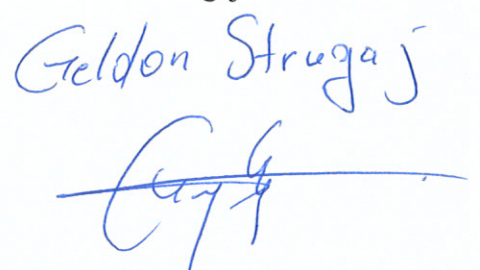 Geldon Strugaj